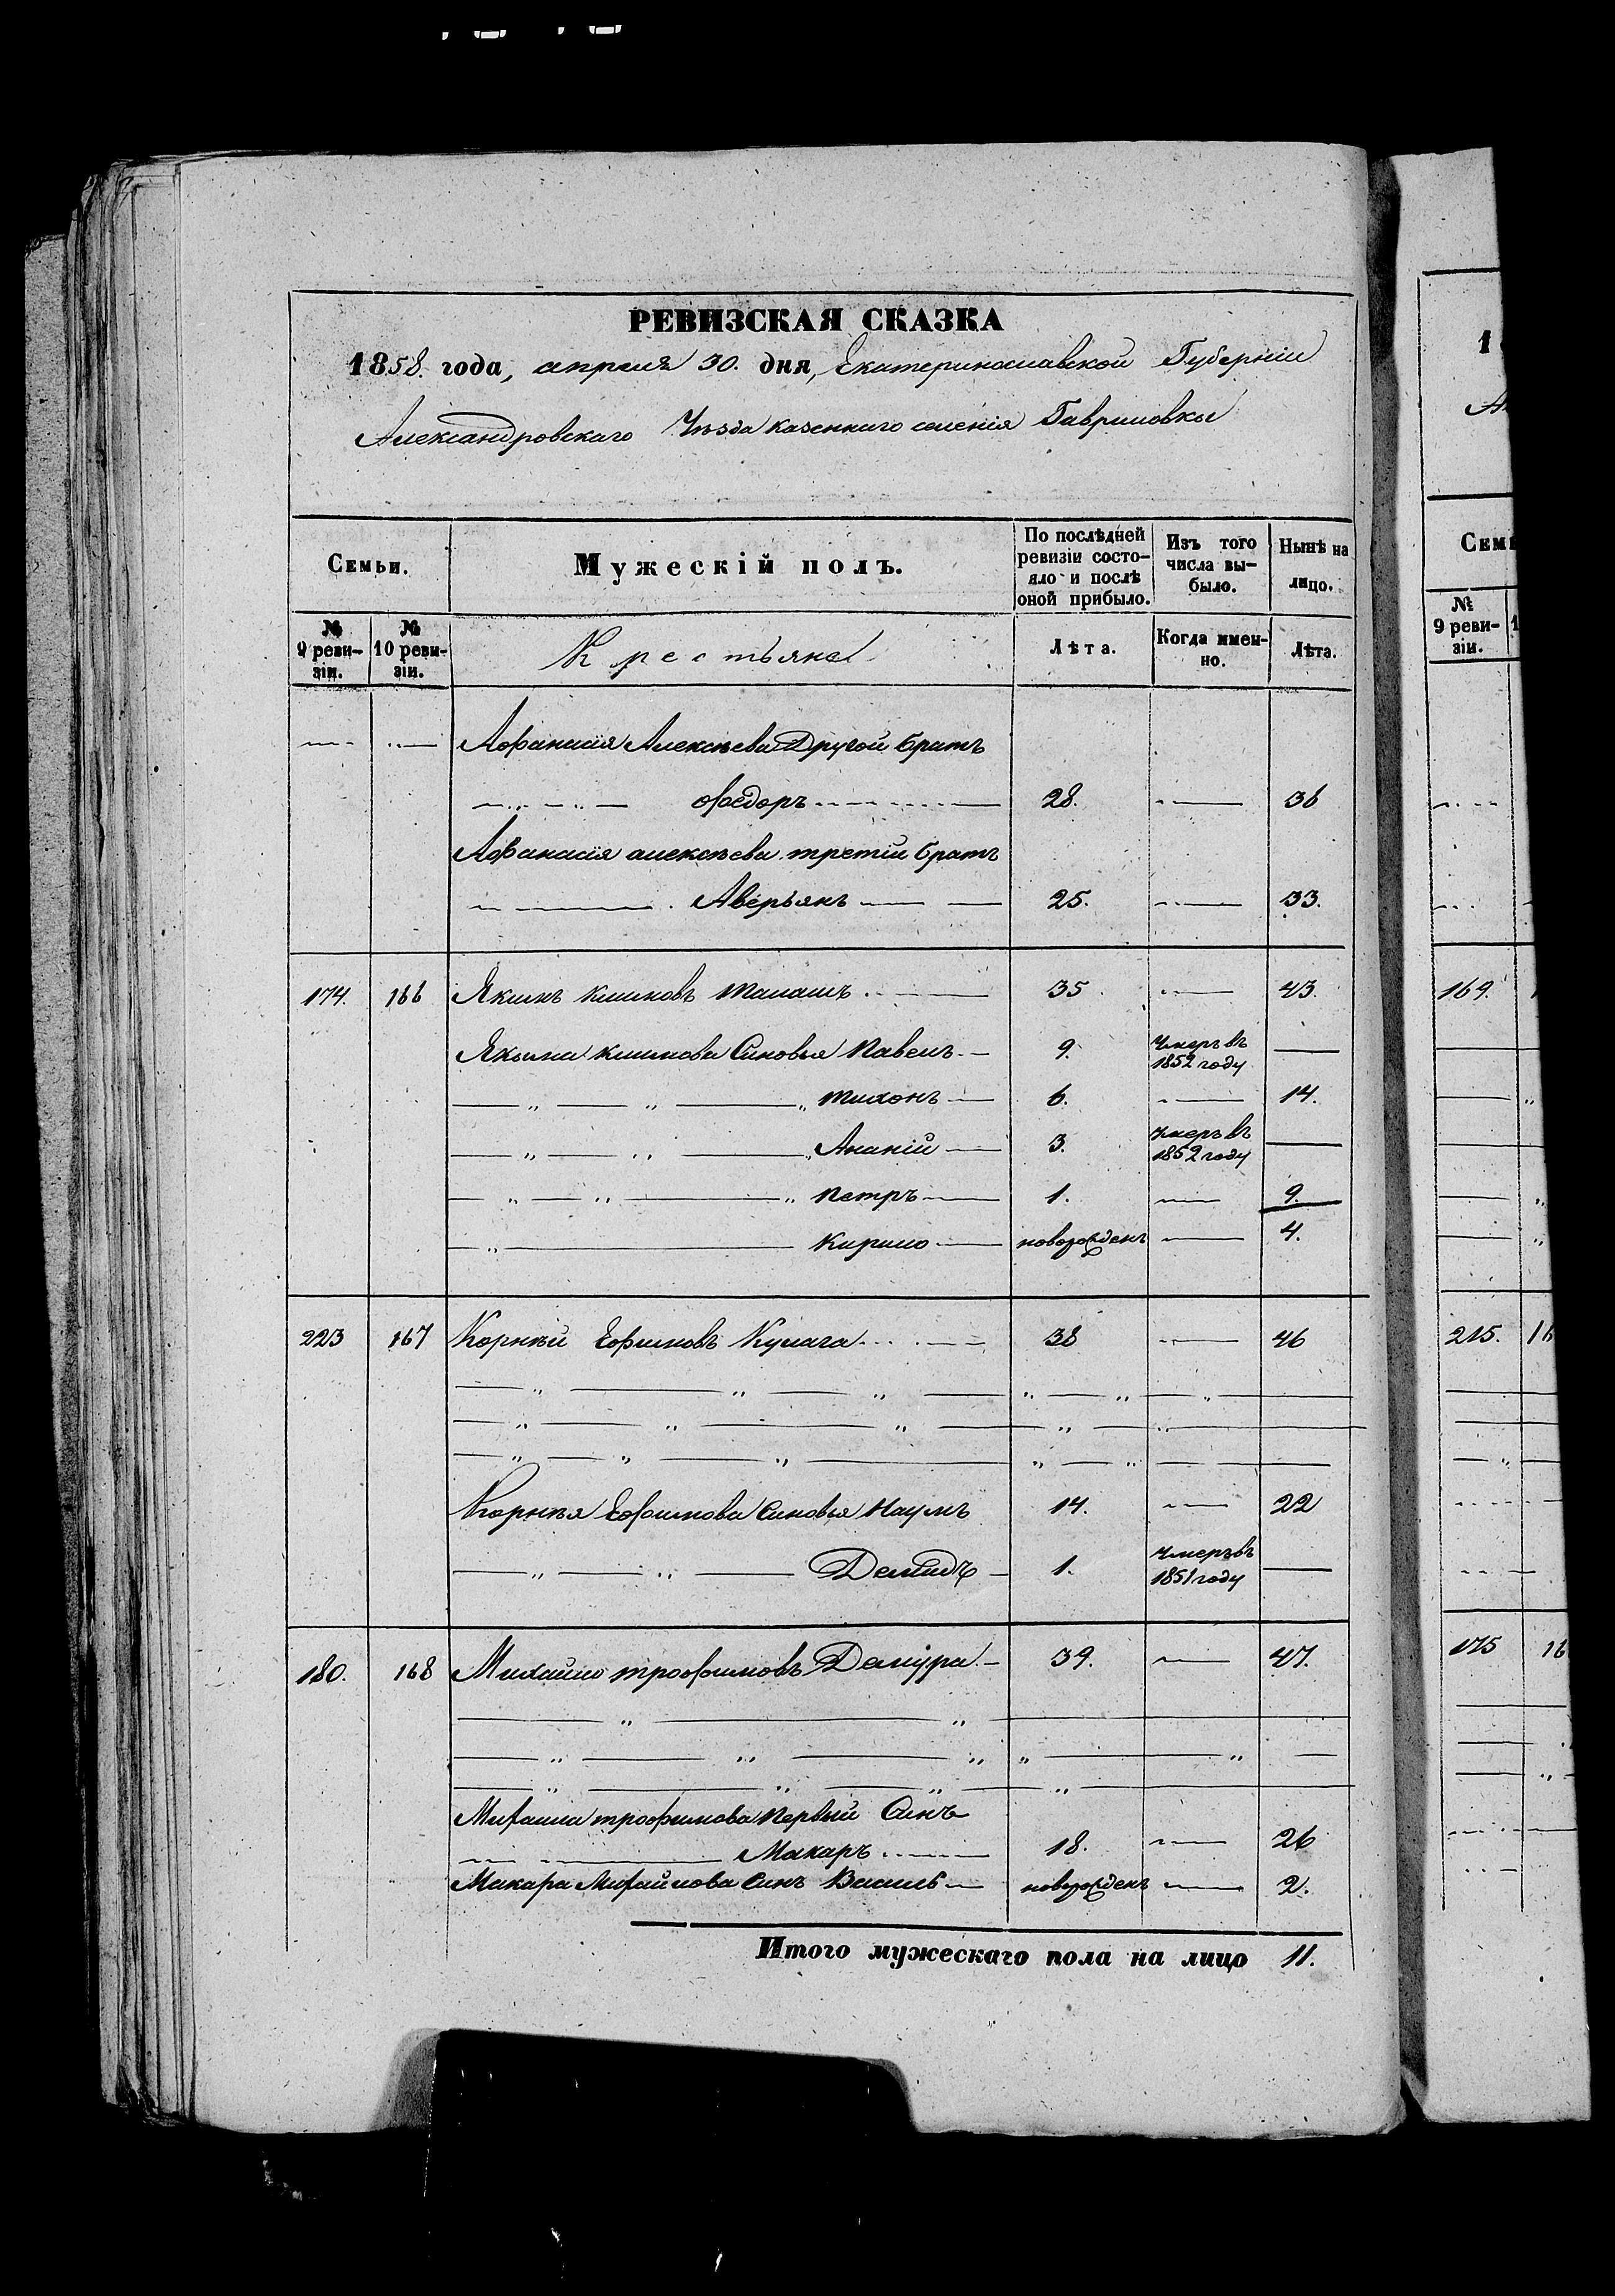 РЕВИЗСКАЯ СКАЗКА
1858. года, апреля 30. дня, Екатеринославской Губерніи
Александровскаго Уѣзда казеннаго селенія Гавриловки
Семьи.
Мужескій полъ.
По послѣдней ревизіи состояло и послѣ оной прибыло.
Изъ того числа выбыло.
Нынѣ на лицо.
№ 9 ревизіи.
№ 10 ревизіи.
Крестьяне
Лѣта.
Когда именно.
Лѣта.
Афанасія Алексѣева Другой братъ
Федоръ 28. 36
Афанасія алексѣева третій братъ
Аверьянъ 25. 33.
174. 166 Якимъ климовъ Малашъ 35 43.
Якима климова Сыновья Павелъ 9. умеръ въ 1852 году
Тихонъ 6. 14.
Ананій 3. умеръ въ 1852 году
Петръ 1. 9.
Кирило новорожденъ 4.
223 167 Корнѣй Ефимовъ Кулага 38 46
Корнѣя Ефимова Сыновья Наумъ 14. 22
Демидъ 1. умеръ въ 1851 году
180. 168 Михайло трофимовъ Демура 39. 47.
Михаила трофимова первый Сынъ
Макаръ 18. 26
Макара Михайлова Сынъ Василь новорожденъ 2.
Итого мужескаго пола на лицо 11.
Семь
№ 9 ревизіи.
169.
215. 16
175 16